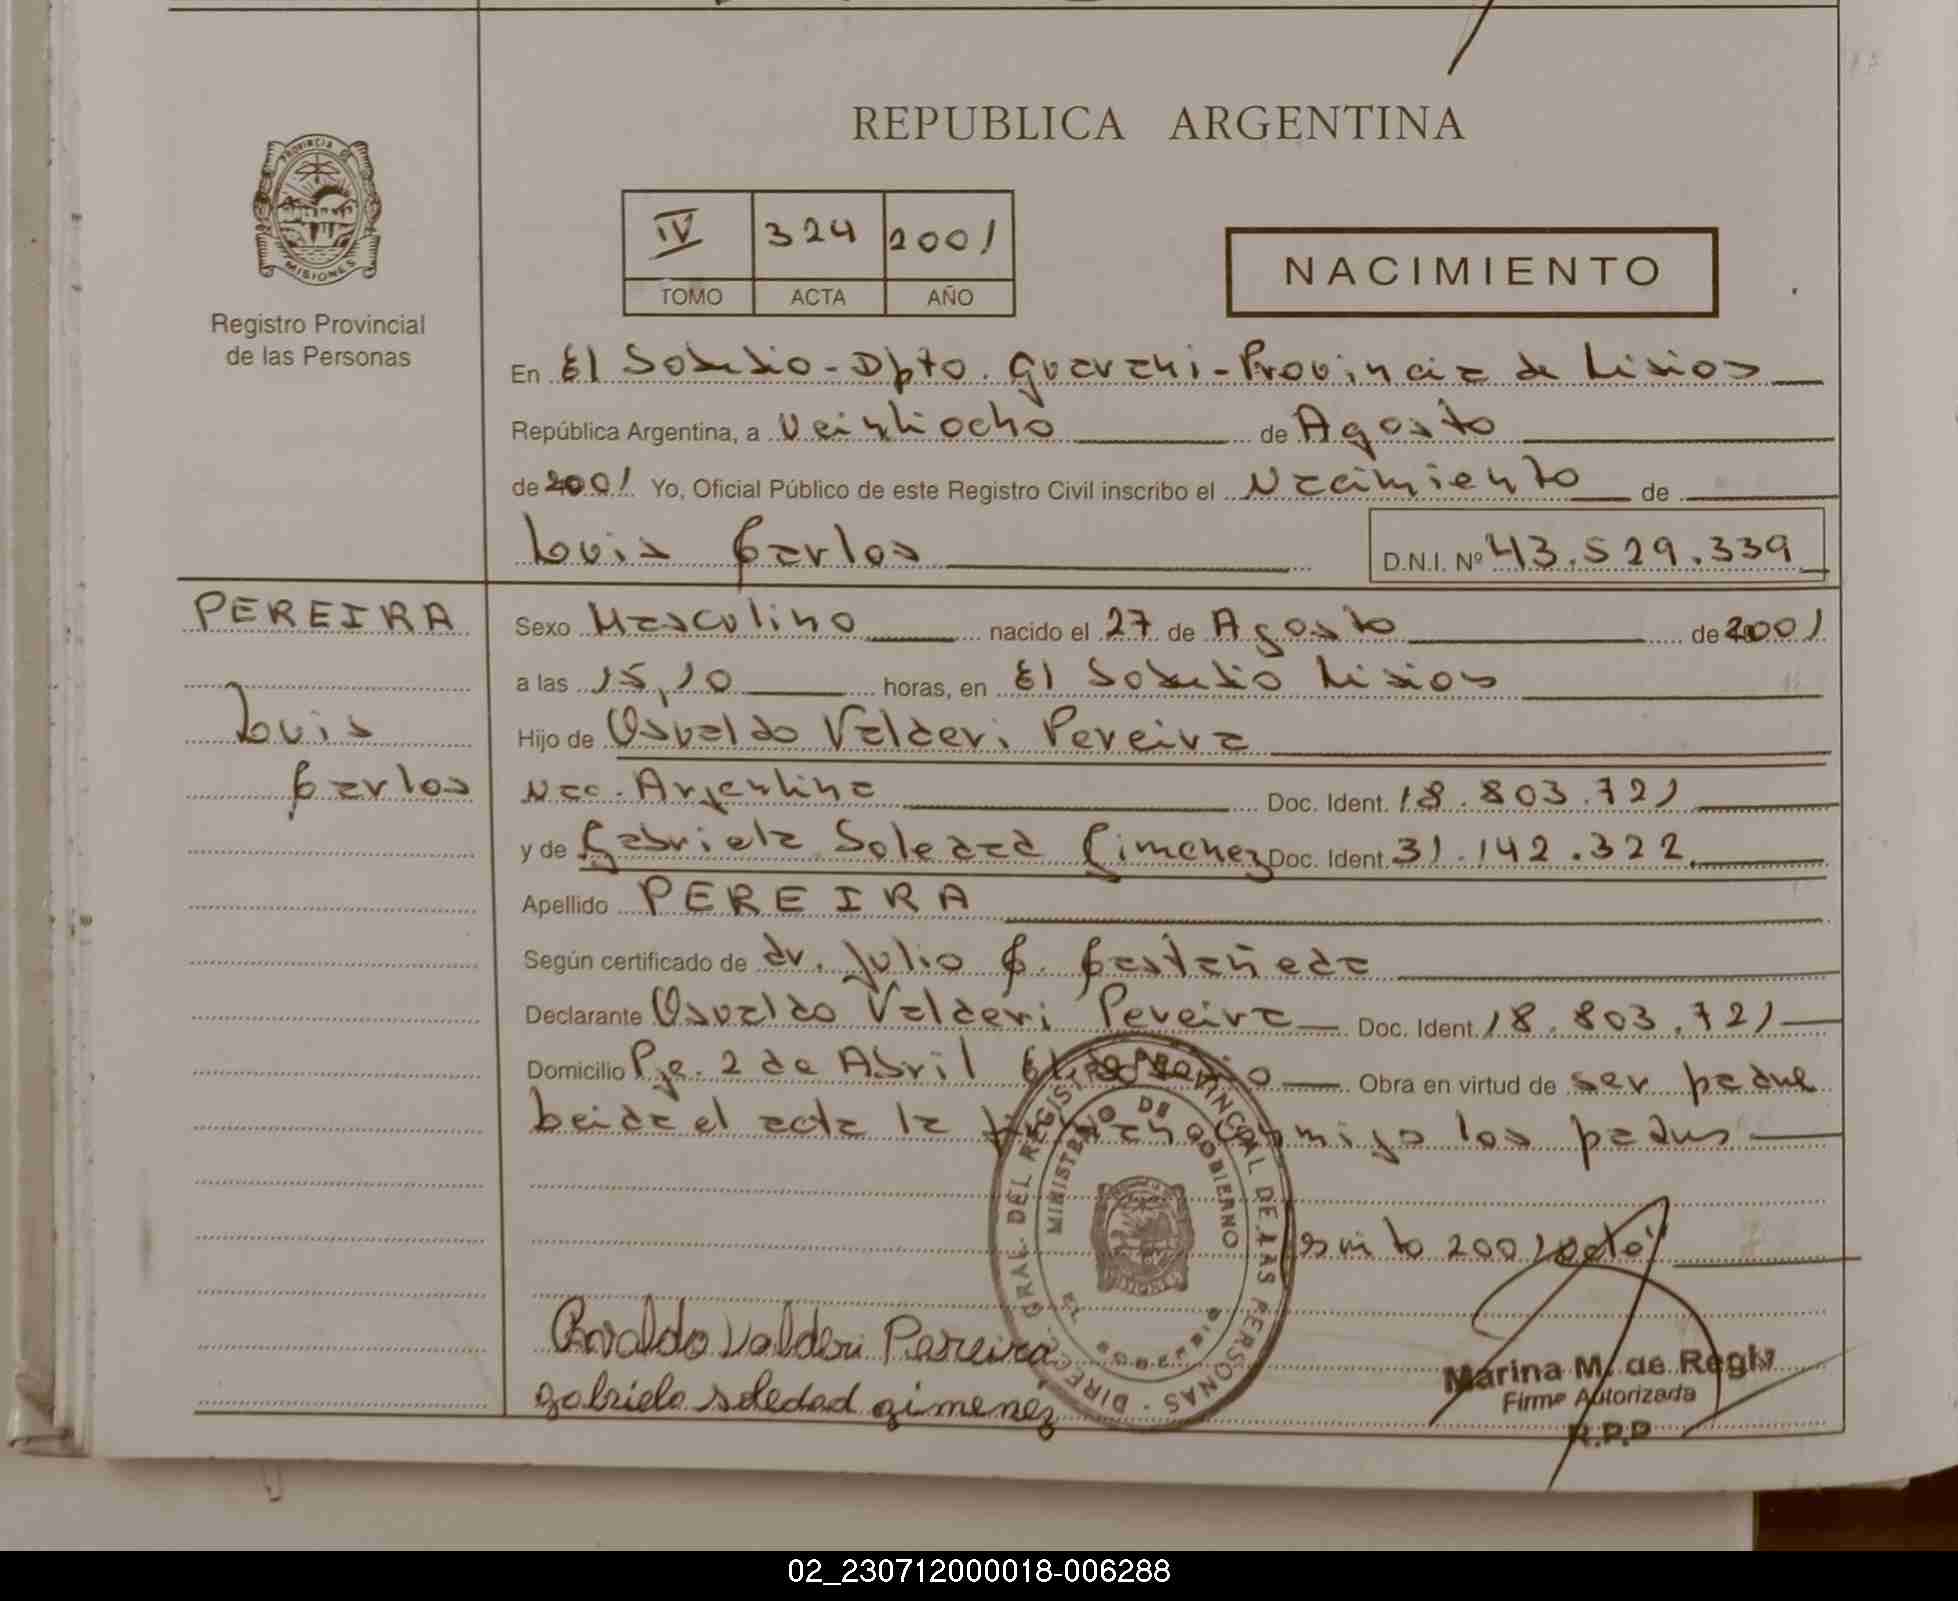 REPUBLICA ARGENTINA
PROVINCIA DE
MISIONES
Registro Provincial
de las Personas
IV 324 2001
TOMO ACTA AÑO
NACIMIENTO
En El Soberbio - Dpto. Guarani - Provincia de Misios
República Argentina, a Veintiocho de Agosto
de 2001 Yo, Oficial Público de este Registro Civil inscribo el Nacimiento de
Luis Carlos D.N.I. Nº 43.529.339
PEREIRA
Luis
Carlos
Sexo Masculino nacido el 27 de Agosto de 2001
a las 15,10 horas, en El Soberbio Misios
Hijo de Osvaldo Valderi Pereira
Nac. Argentina Doc. Ident. 18.803.721
y de Gabriela Soledad Gimenez Doc. Ident. 31.142.322
Apellido PEREIRA
Según certificado de dr. Julio C. Castañeda
Declarante Osvaldo Valderi Pereira Doc. Ident. 18.803.721
Domicilio Pje. 2 de Abril El Soberbio Obra en virtud de ser padre
Leida el acta la firman conmigo los padres
2001
DIREC. GRAL. DEL REGISTRO PROVINCIAL DE LAS PERSONAS
MINISTERIO DE GOBIERNO
MISIONES
Osvaldo Valderi Pereira
gabriela soledad gimenez
Marina M. de Regly
Firma Autorizada
R.P.P
02_230712000018-006288